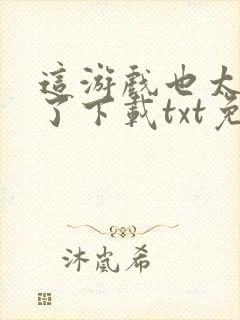 這游戲也太
了下載txt免
沐嵐希